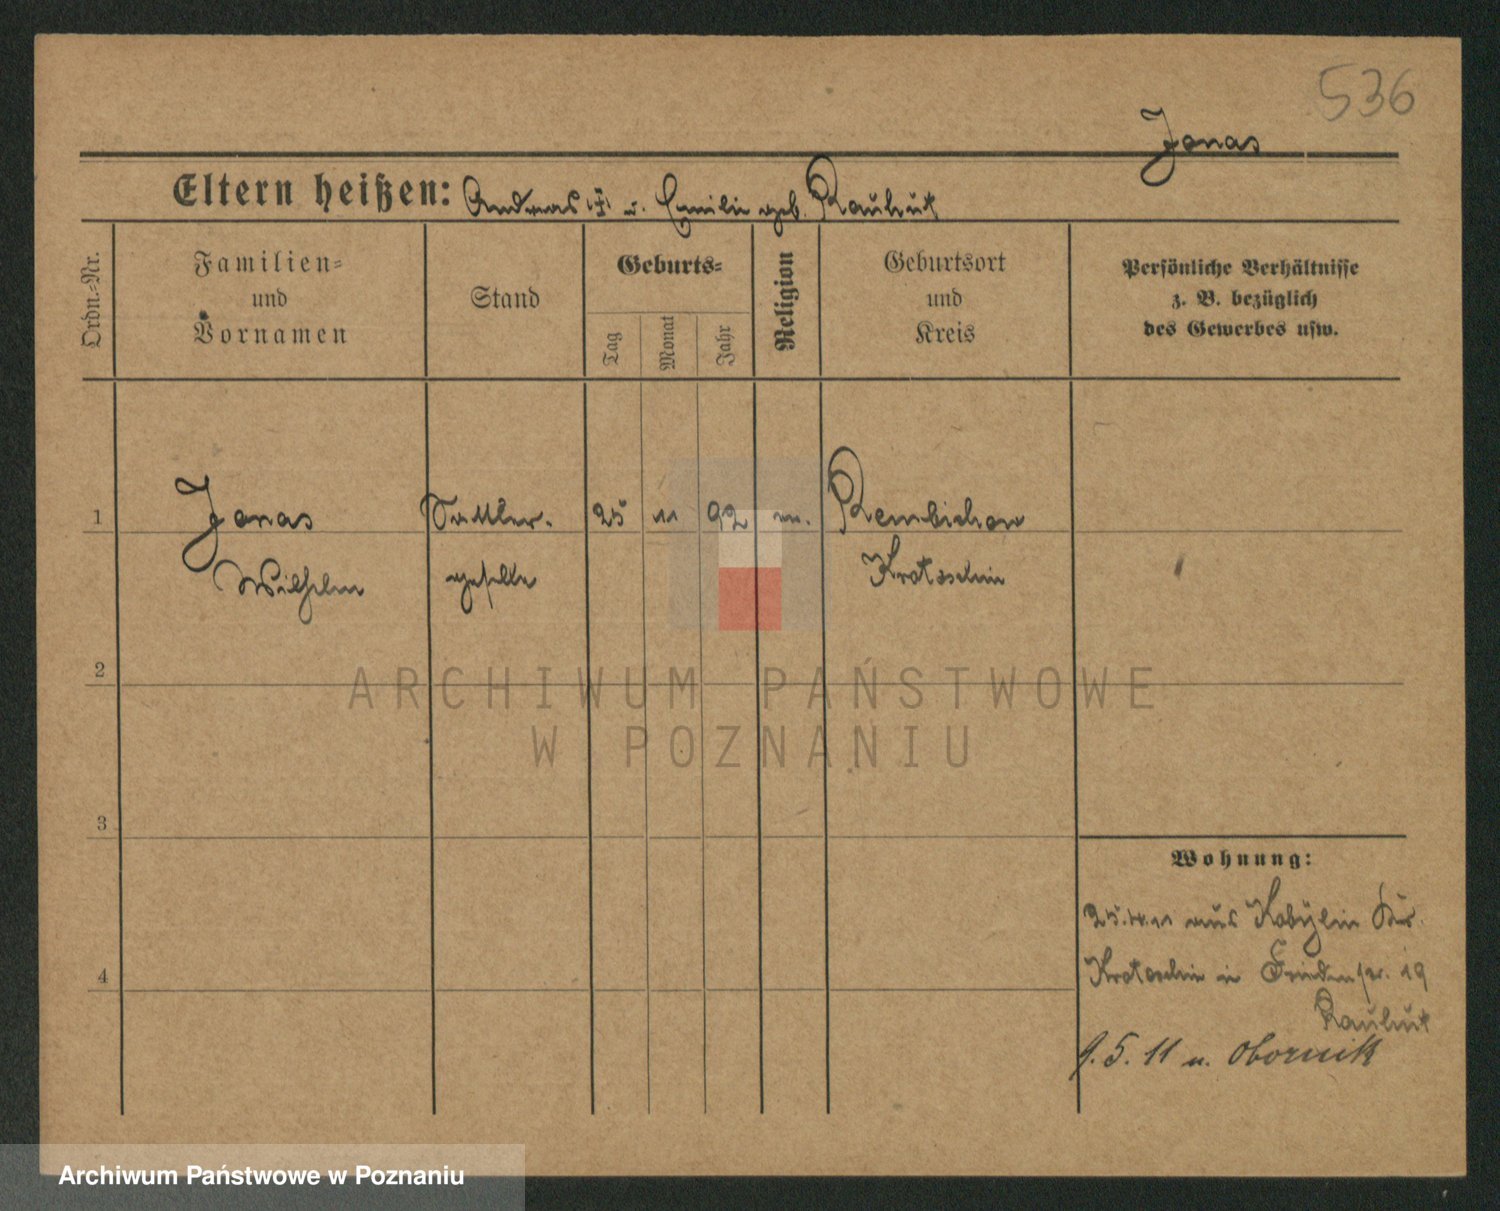 536
Jonas
Eltern heißen: Andreas (†) u. Emilie geb. Rauhut
Ordn.-Nr.
Familien-
und
Vornamen
Stand
Geburts-
Tag
Monat
Jahr
Religion
Geburtsort
und
Kreis
Persönliche Verhältnisse
z. B. bezüglich
des Gewerbes usw.
1
Jonas Sattler- 25 11 92 Rembichow
Wilhelm geselle Krotoschin
2
ARCHIWUM PAŃSTWOWE
W POZNANIU
3
Wohnung:
25.4.11 aus Kobylin Kr.
4
Krotoschin in 19
Rauhut
9.5.11 n. Obornik
Archiwum Państwowe w Poznaniu